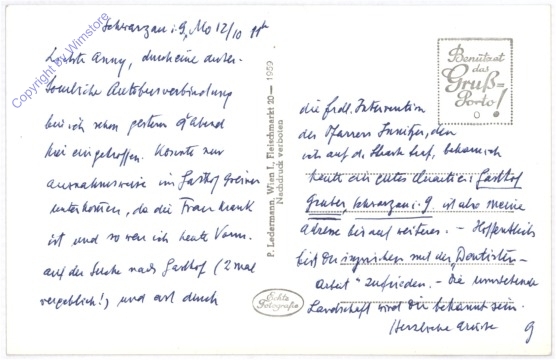 Schwarzau i. G., Mo 12/10 
Liebste Anny, durch eine außer-
bin ich schon gestern 9h abend
hier eingetroffen. Konnte nur
ausnahmsweise im Gasthof
unterkommen, da die Frau krank
ist und so war ich heute Vorm.
auf der Suche nach Gasthof (2 mal
vergeblich!) und erst durch
P. Ledermann, Wien I., Fleischmarkt 20 — 1959
Nachdruck verboten
Echte
Fotografie
Benützet
das
Gruß-
Porto!
die frdl. Intervention
des Pfarrers, den
ich auf der traf, bekam ich
heute ein gutes Quartier: Gasthof
Gruber, Schwarzau i. G. ist also meine
Adresse bis auf weiteres. – Hoffentlich
bist Du inzwischen mit der „Dentisten-
Arbeit" zufrieden. – Die umstehende
Landschaft wird Dir bekannt sein.
Herzliche Grüße
Copyright by Wimstore